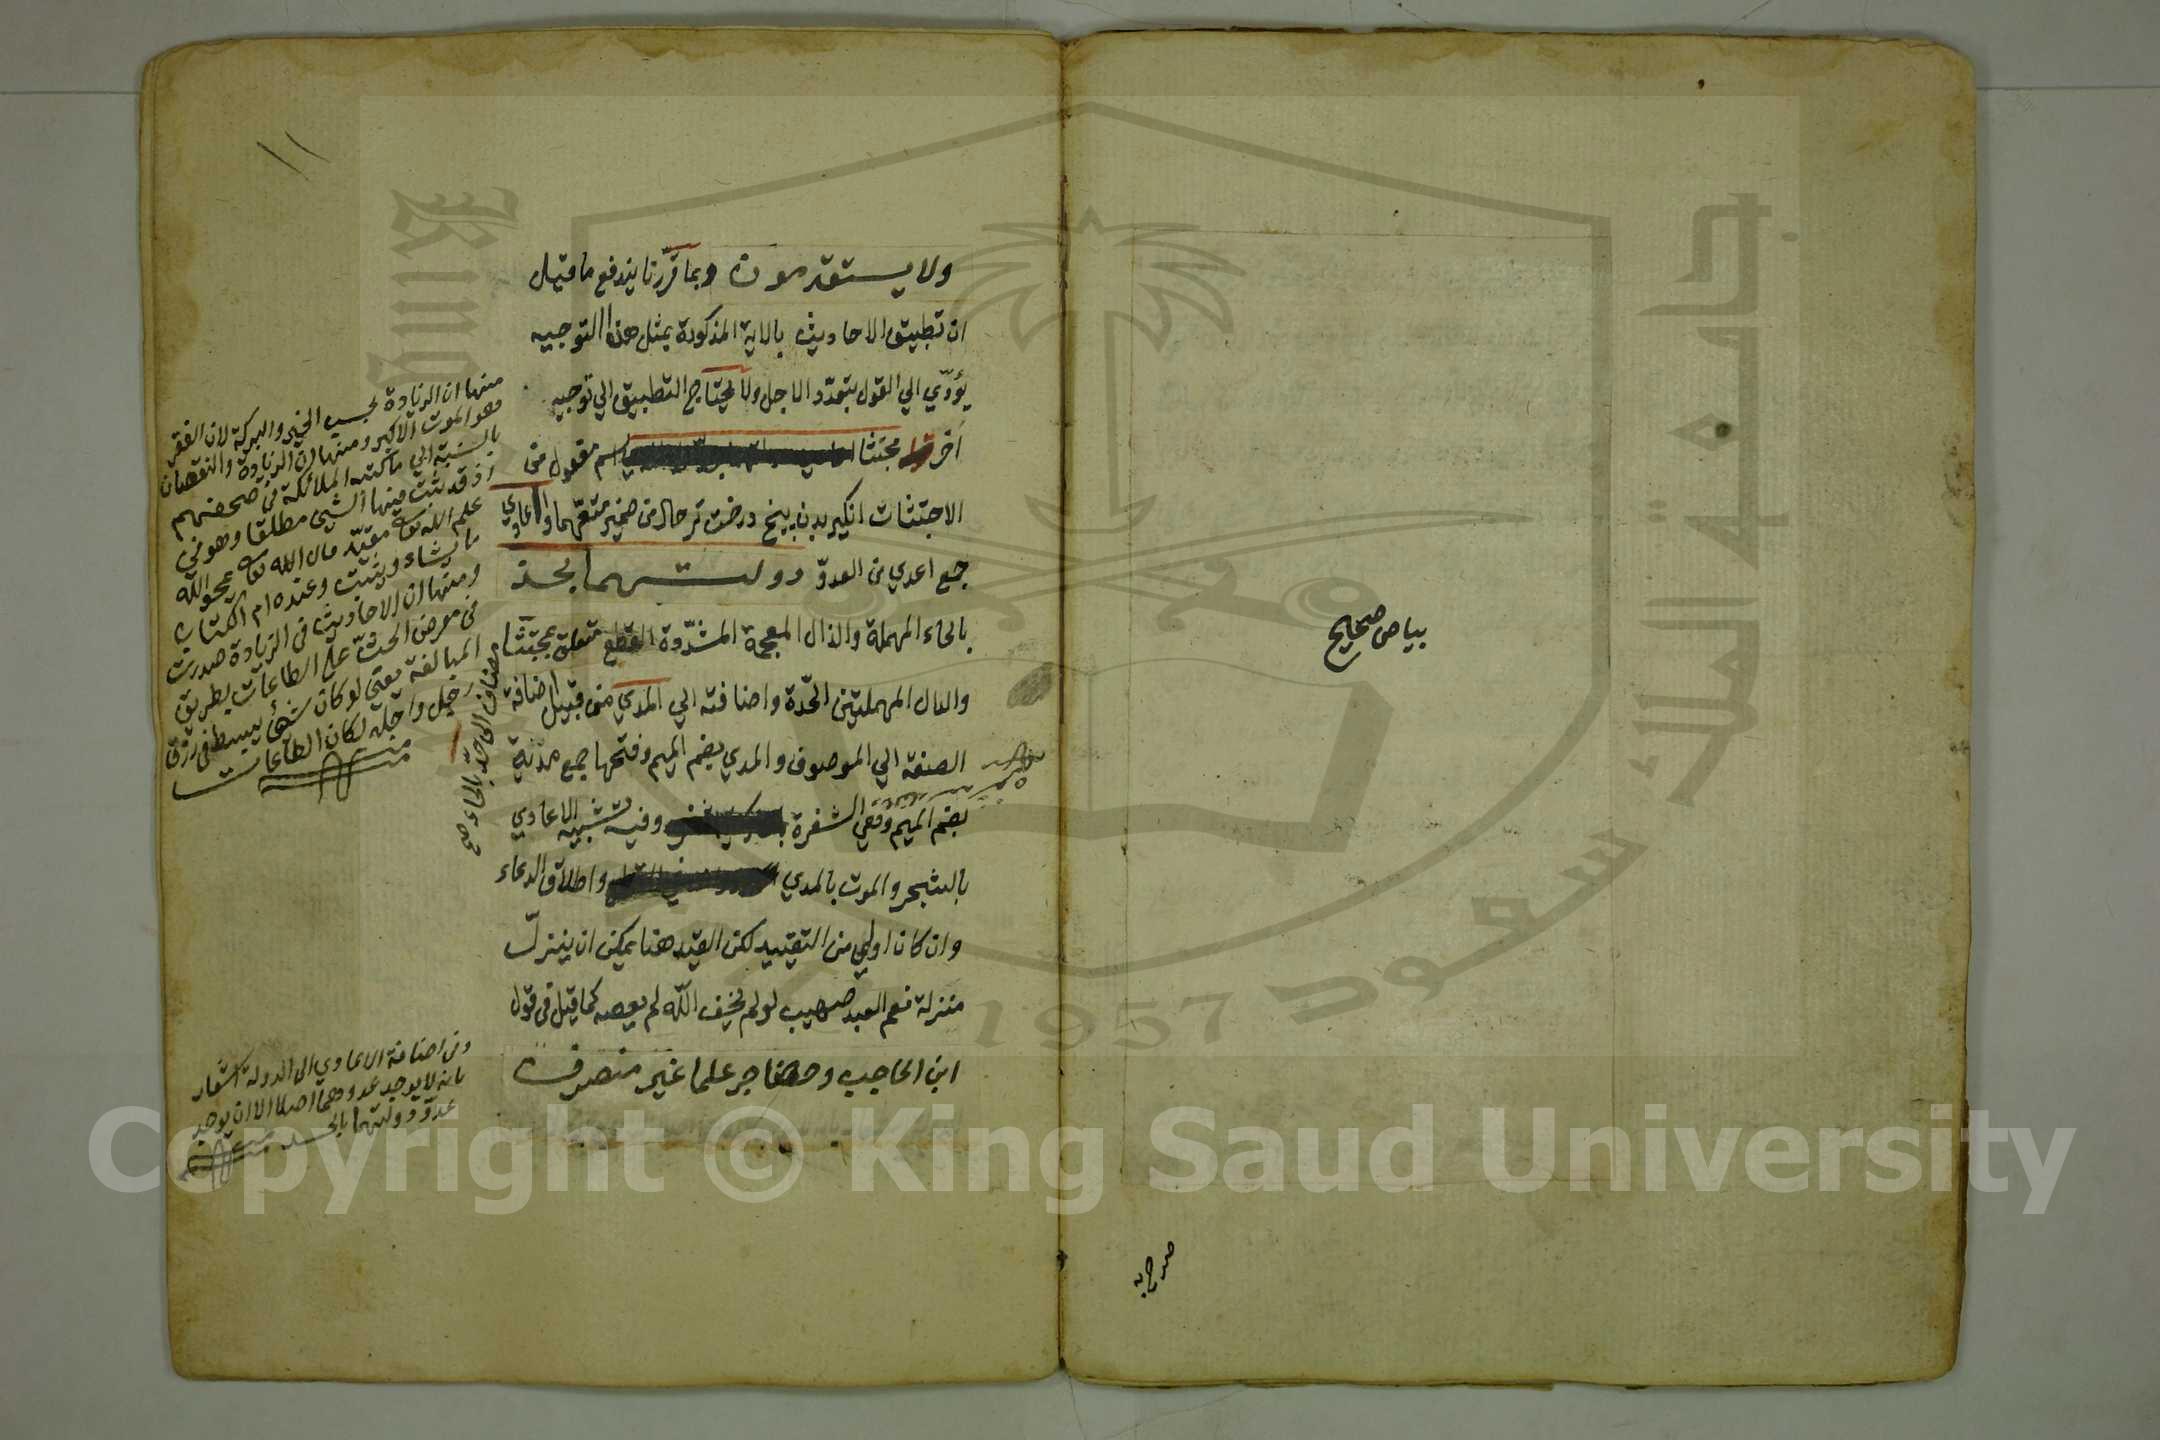 بياض صحيح
صرح به
١١
ولا يستقدمون وبما قرّرنا يندفع ما قيل
ان تطبيق الاحاديث بالاية المذكورة بمثل هذا التوجيه
يؤدّي الي القول بتعدّد الاجل ولا يحتاج التطبيق الي توجيه
اخر مجتثا اسم مفعول من
الاجتثاث حال من ضمير متعهما واعادي
جمع اعدي من العدوّ دولتهما بحذ
بالحاء المهملة والذال المعجمة المشدّدة القطع متعلق بمجتثا
والدال المهملتين الحدّة واضافته الي المدي من قبيل اضافة
الصفة الي الموصوف والمدي بضم الميم وفتحها جمع مدية
بضم الميم وهي الشفرة وفيه تشبيه الاعادي
بالشجر والموت بالمدي واطلاق الدعاء
وان كان اولي من التقييد لكن القيد هنا يمكن ان ينزل
منزلة نعم العبد صهيب لو لم يخف الله لم يعصه كما قيل في قول
ابن الحاجب وحضاجر علما غير منصرف
منها ان الزيادة بحسب الخير والبركة لان الفقر
هو الموت الاكبر ومنها ان الزيادة والنقصان
بالنسبة الي ما كتبه الملائكة في صحفهم
اذ قد يثبت فيها الشيئ مطلقا وهو في
علم الله تع مقيّد قال الله تع يمحو الله
ما يشاء ويثبت وعنده ام الكتاب
ومنها ان الاحاديث في الزيادة صدرت
في معرض الحث علي الطاعات بطريق
المبالغة يعني لو كان شيئ يبسط في رزق
رجل واجله لكان الطاعات
منه
مضاف الي الحدّ بالحاء صح
وفي اضافة الاعادي الي الدولة اشعار
بانه لا يوجد عدوهما اصلا الا ان يوجد
عدوّ دولتهما بالحسد منه
1957
جامعة الملك سعود
Copyright © King Saud University